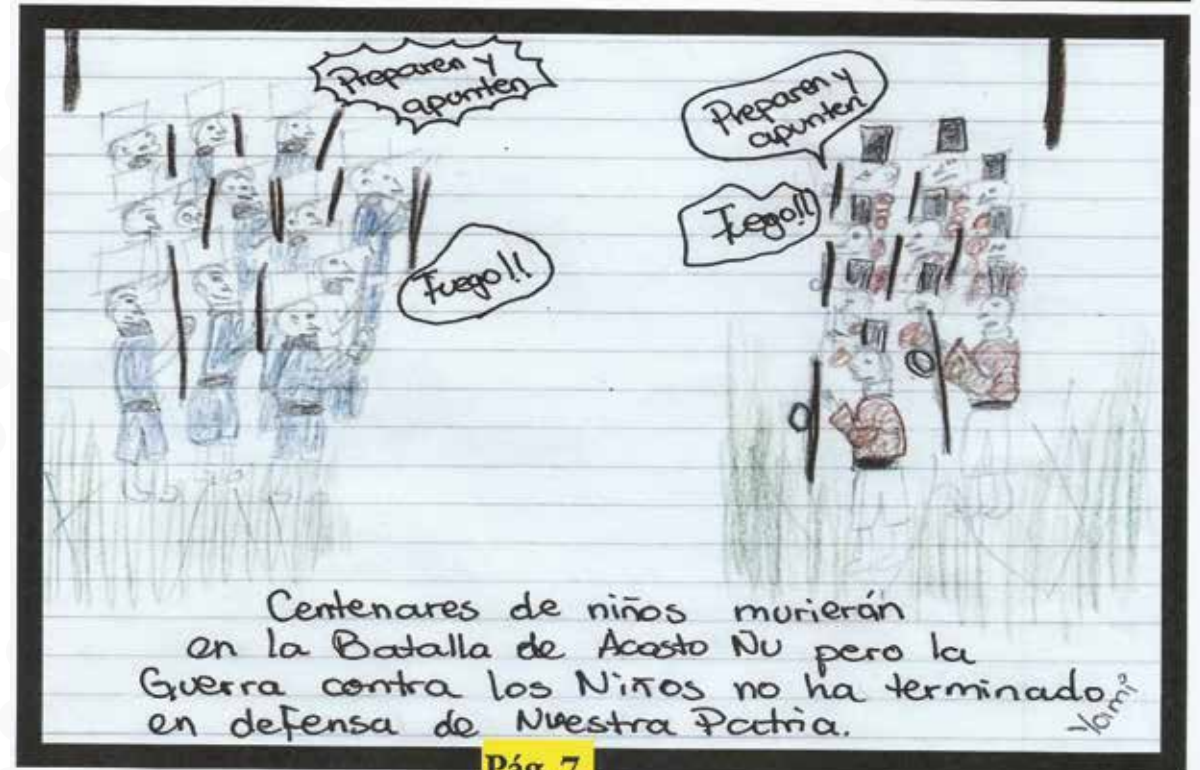 Preparen y
apunten
Preparen y
apunten
Fuego!!
Fuego!!
Centenares de niños murierán
en la Batalla de Acosto Nu pero la
Guerra contra los Niños no ha terminado,
en defensa de Nuestra Patria.
Yami
Pág. 7